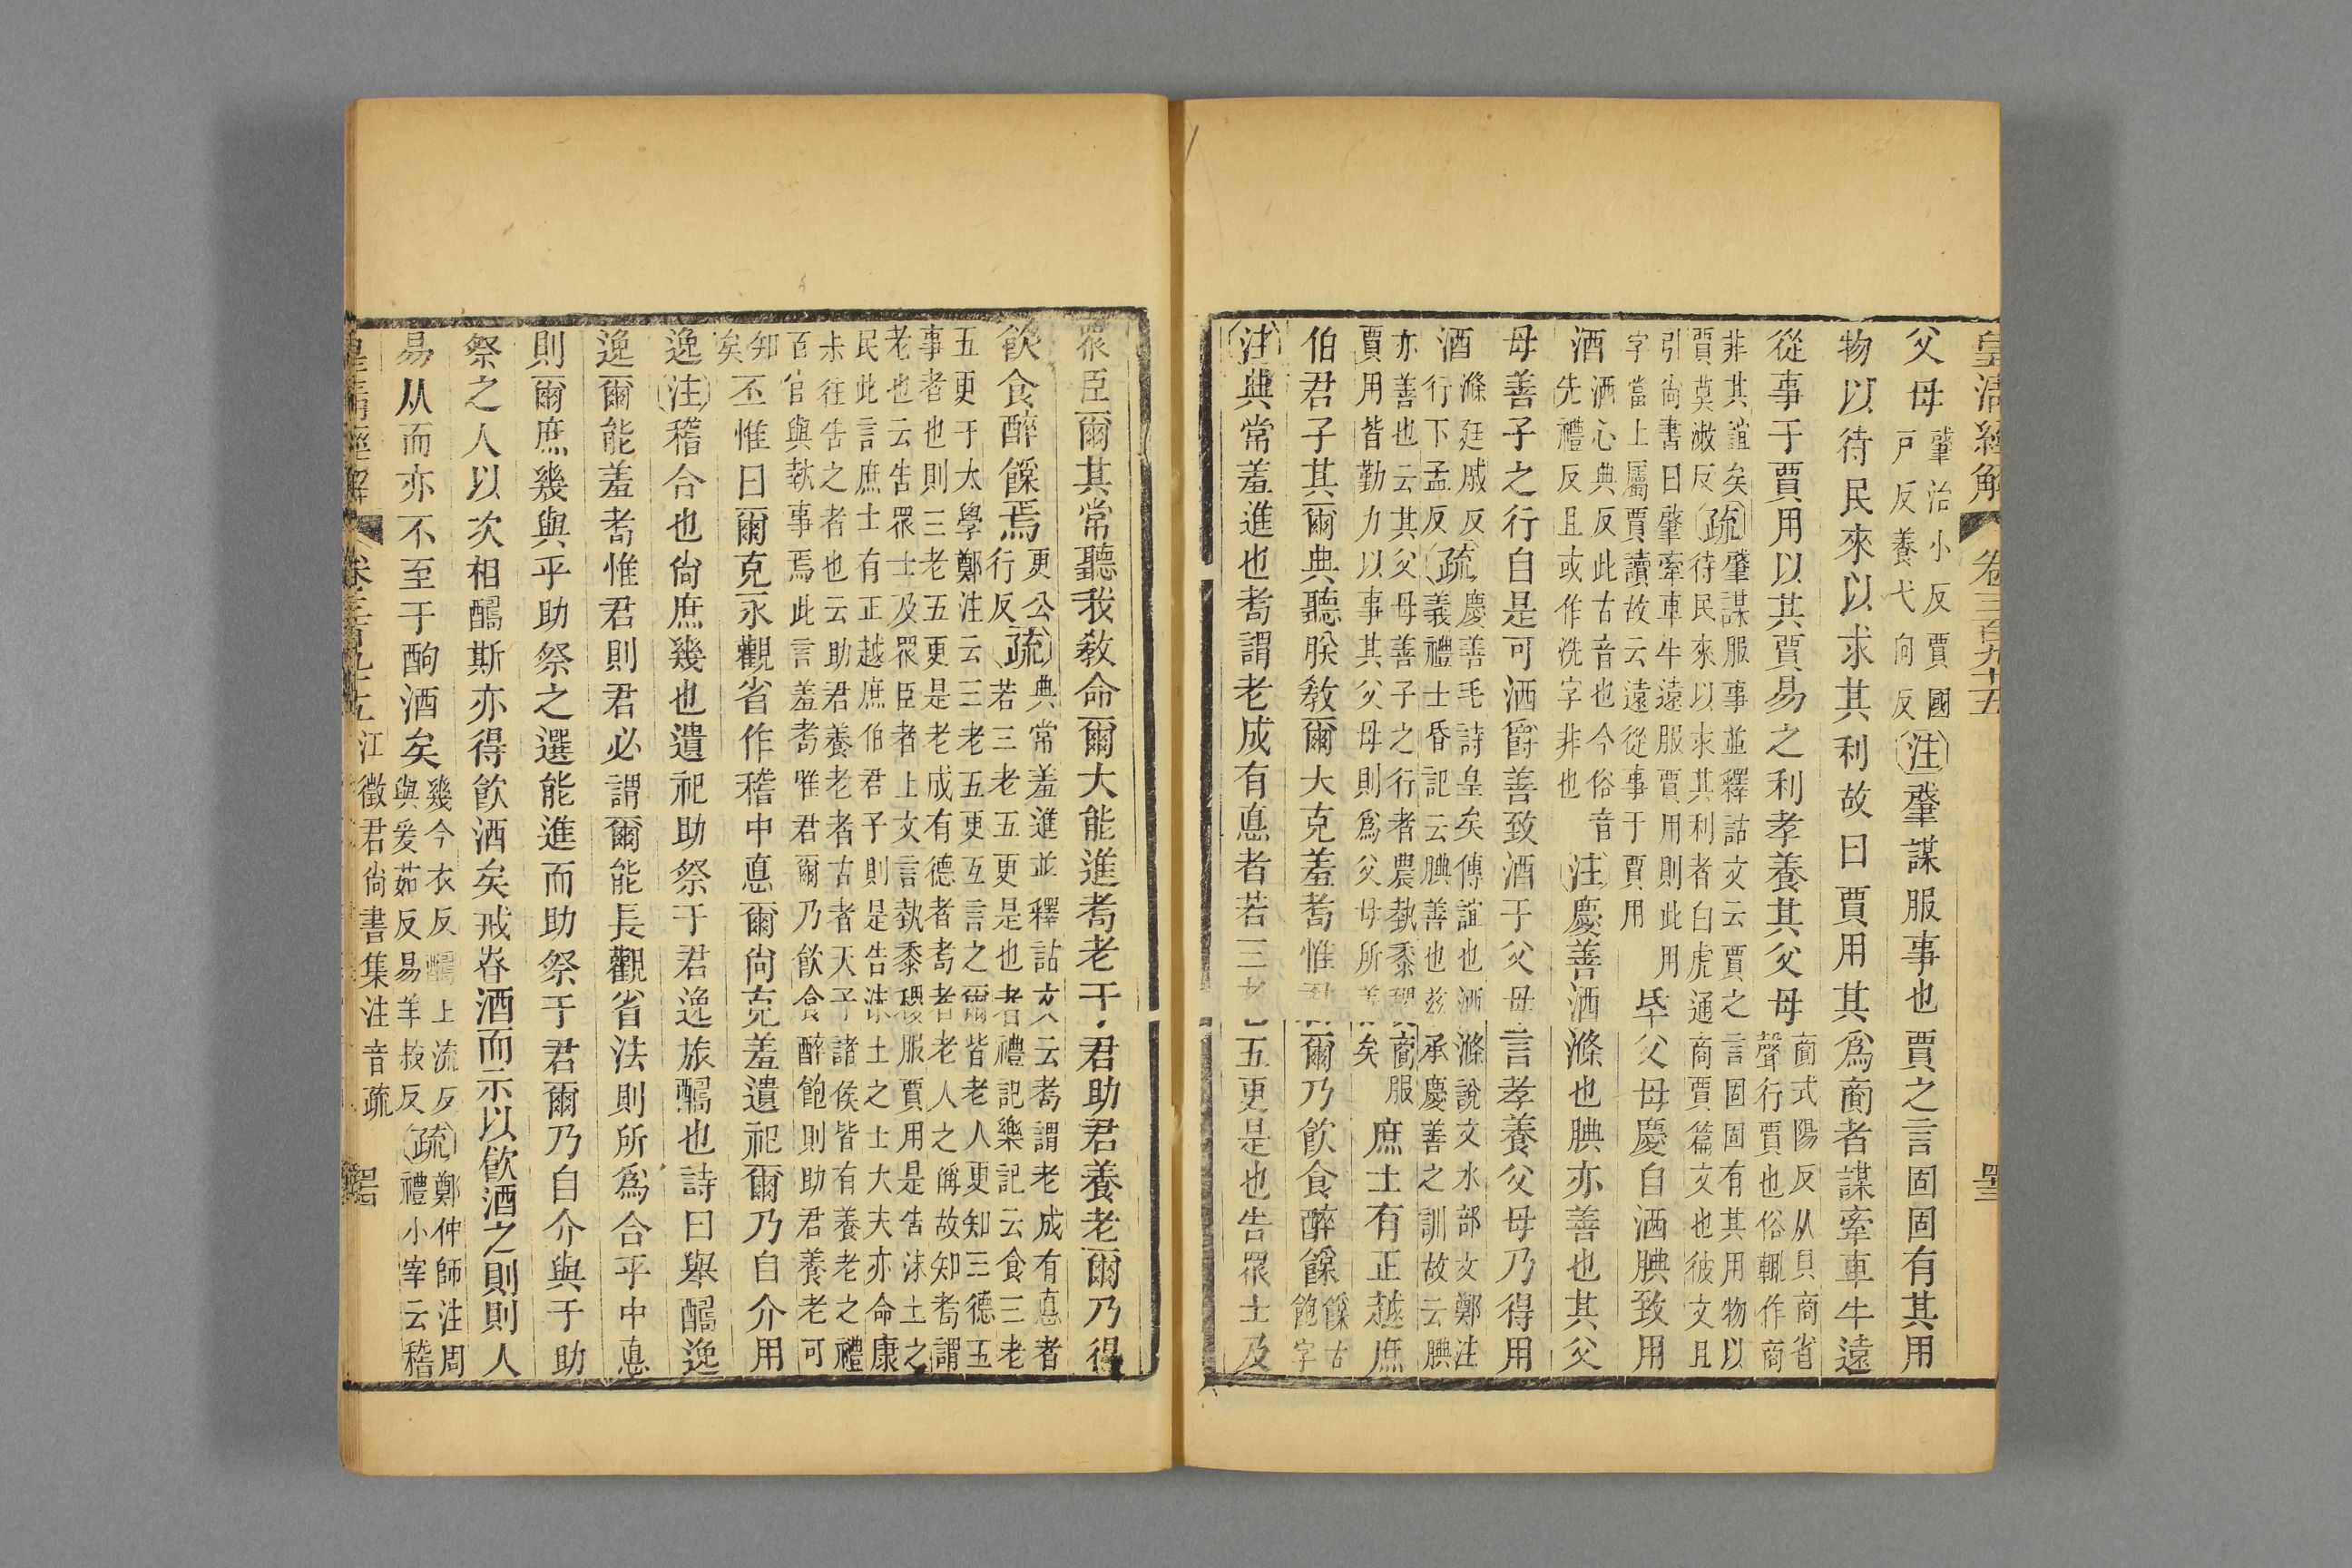 皇清經解 卷三百九十五 
父母肈治小反賈國戸反養弋向反注肈謀服事也賈之言固固有其用
物以待民來以求其利故曰賈用其爲啇者謀牽車牛遠
從事于賈用以其賈易之利孝養其父母啇式陽反从貝商省聲行賈也俗輒作商
非其誼矣賈莫漵反疏肈謀服事並釋詁文云賈之言固固有其用物以待民來以求其利者白虎通商賈篇文也彼文且
引尙書曰肈牽車牛遠服賈用則此用字當上屬賈讀故云遠從事于賈用氒父母慶自洒腆致用
酒洒心典反此古音也今俗音先禮反且或作洗字非也注慶善洒滌也腆亦善也其父
母善子之行自是可洒爵善致酒于父母言孝養父母乃得用
酒滌廷戚反行下孟反疏慶善毛詩皇矣傳誼也洒滌說文水部文鄭注義禮士昏記云腆善也茲承慶善之訓故云腆
亦善也云其父母善子之行者農埶黍稷啇服賈用皆勤力以事其父母則爲父母所善矣庶士有正越庶
伯君子其爾典聽朕敎爾大克羞耇惟君爾乃飮食醉餯餯古飽字
注典常羞進也耇謂老成有悳者若三老五更是也告眾士及
眾臣爾其常聽我敎命爾大能進耇老于君助君養老爾乃得
飮食醉餯焉更公行反疏典常羞進並釋詁文云耇謂老成有悳者若三老五更是也者禮記樂記云食三老
五更于太學鄭注云三老五更互言之爾皆老人更知三德五事者也則三老五更是老成有德者耇者老人之偁故知耇謂
老也云告眾士及眾臣者上文言埶黍稷服賈用是告沬土之民此言庶士有正越庶伯君子則是告沬土之士大夫亦命康
未往告之者也云助君養老者古者天子諸侯皆有養老之禮百官與執事焉此言羞耇唯君爾乃飮食醉飽則助君養老可
知矣丕惟曰爾克永觀省作稽中悳爾尙克羞遺祀爾乃自介用
逸注稽合也尙庶幾也遺祀助祭于君逸旅醻也詩曰舉醻逸
逸爾能羞耇惟君則君必謂爾能長觀省法則所爲合乎中悳
則爾庶幾與乎助祭之選能進而助祭于君爾乃自介與于助
祭之人以次相醻斯亦得飮酒矣戒眘酒而示以飮酒之則則人
易从而亦不至于酗酒矣幾今衣反醻上流反與爰茹反易羊豉反疏鄭仲師注周禮小宰云稽
皇清經解 卷三百九十五 江徵君尙書集注音疏